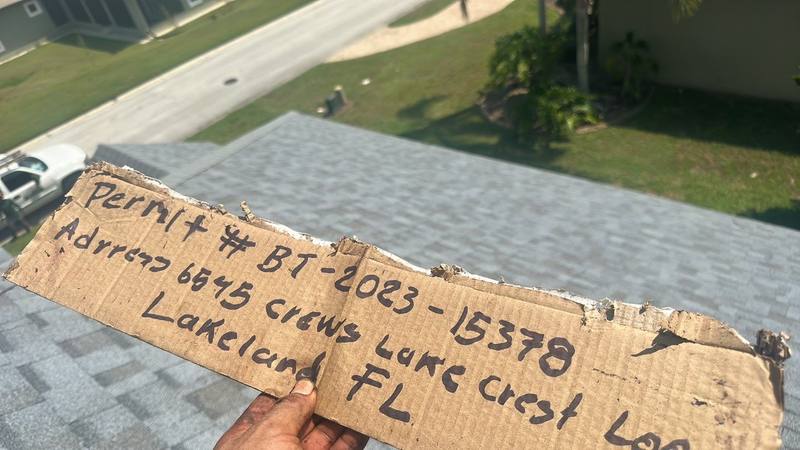 Permit # BT-2023-15378
Adrress 6545 crews Lake Crest Loo
Lakeland FL